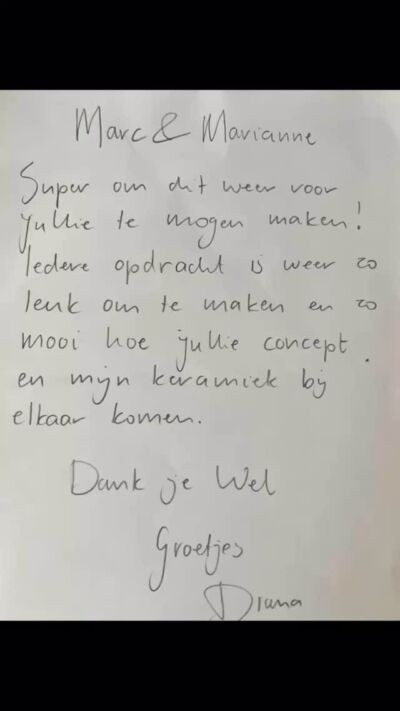 Marc & Marianne
Super om dit weer voor
jullie te mogen maken!
Iedere opdracht is weer zo
leuk om te maken en zo
mooi hoe jullie concept
en mijn keramiek bij
elkaar komen.
Dank je Wel
Groetjes
Diana